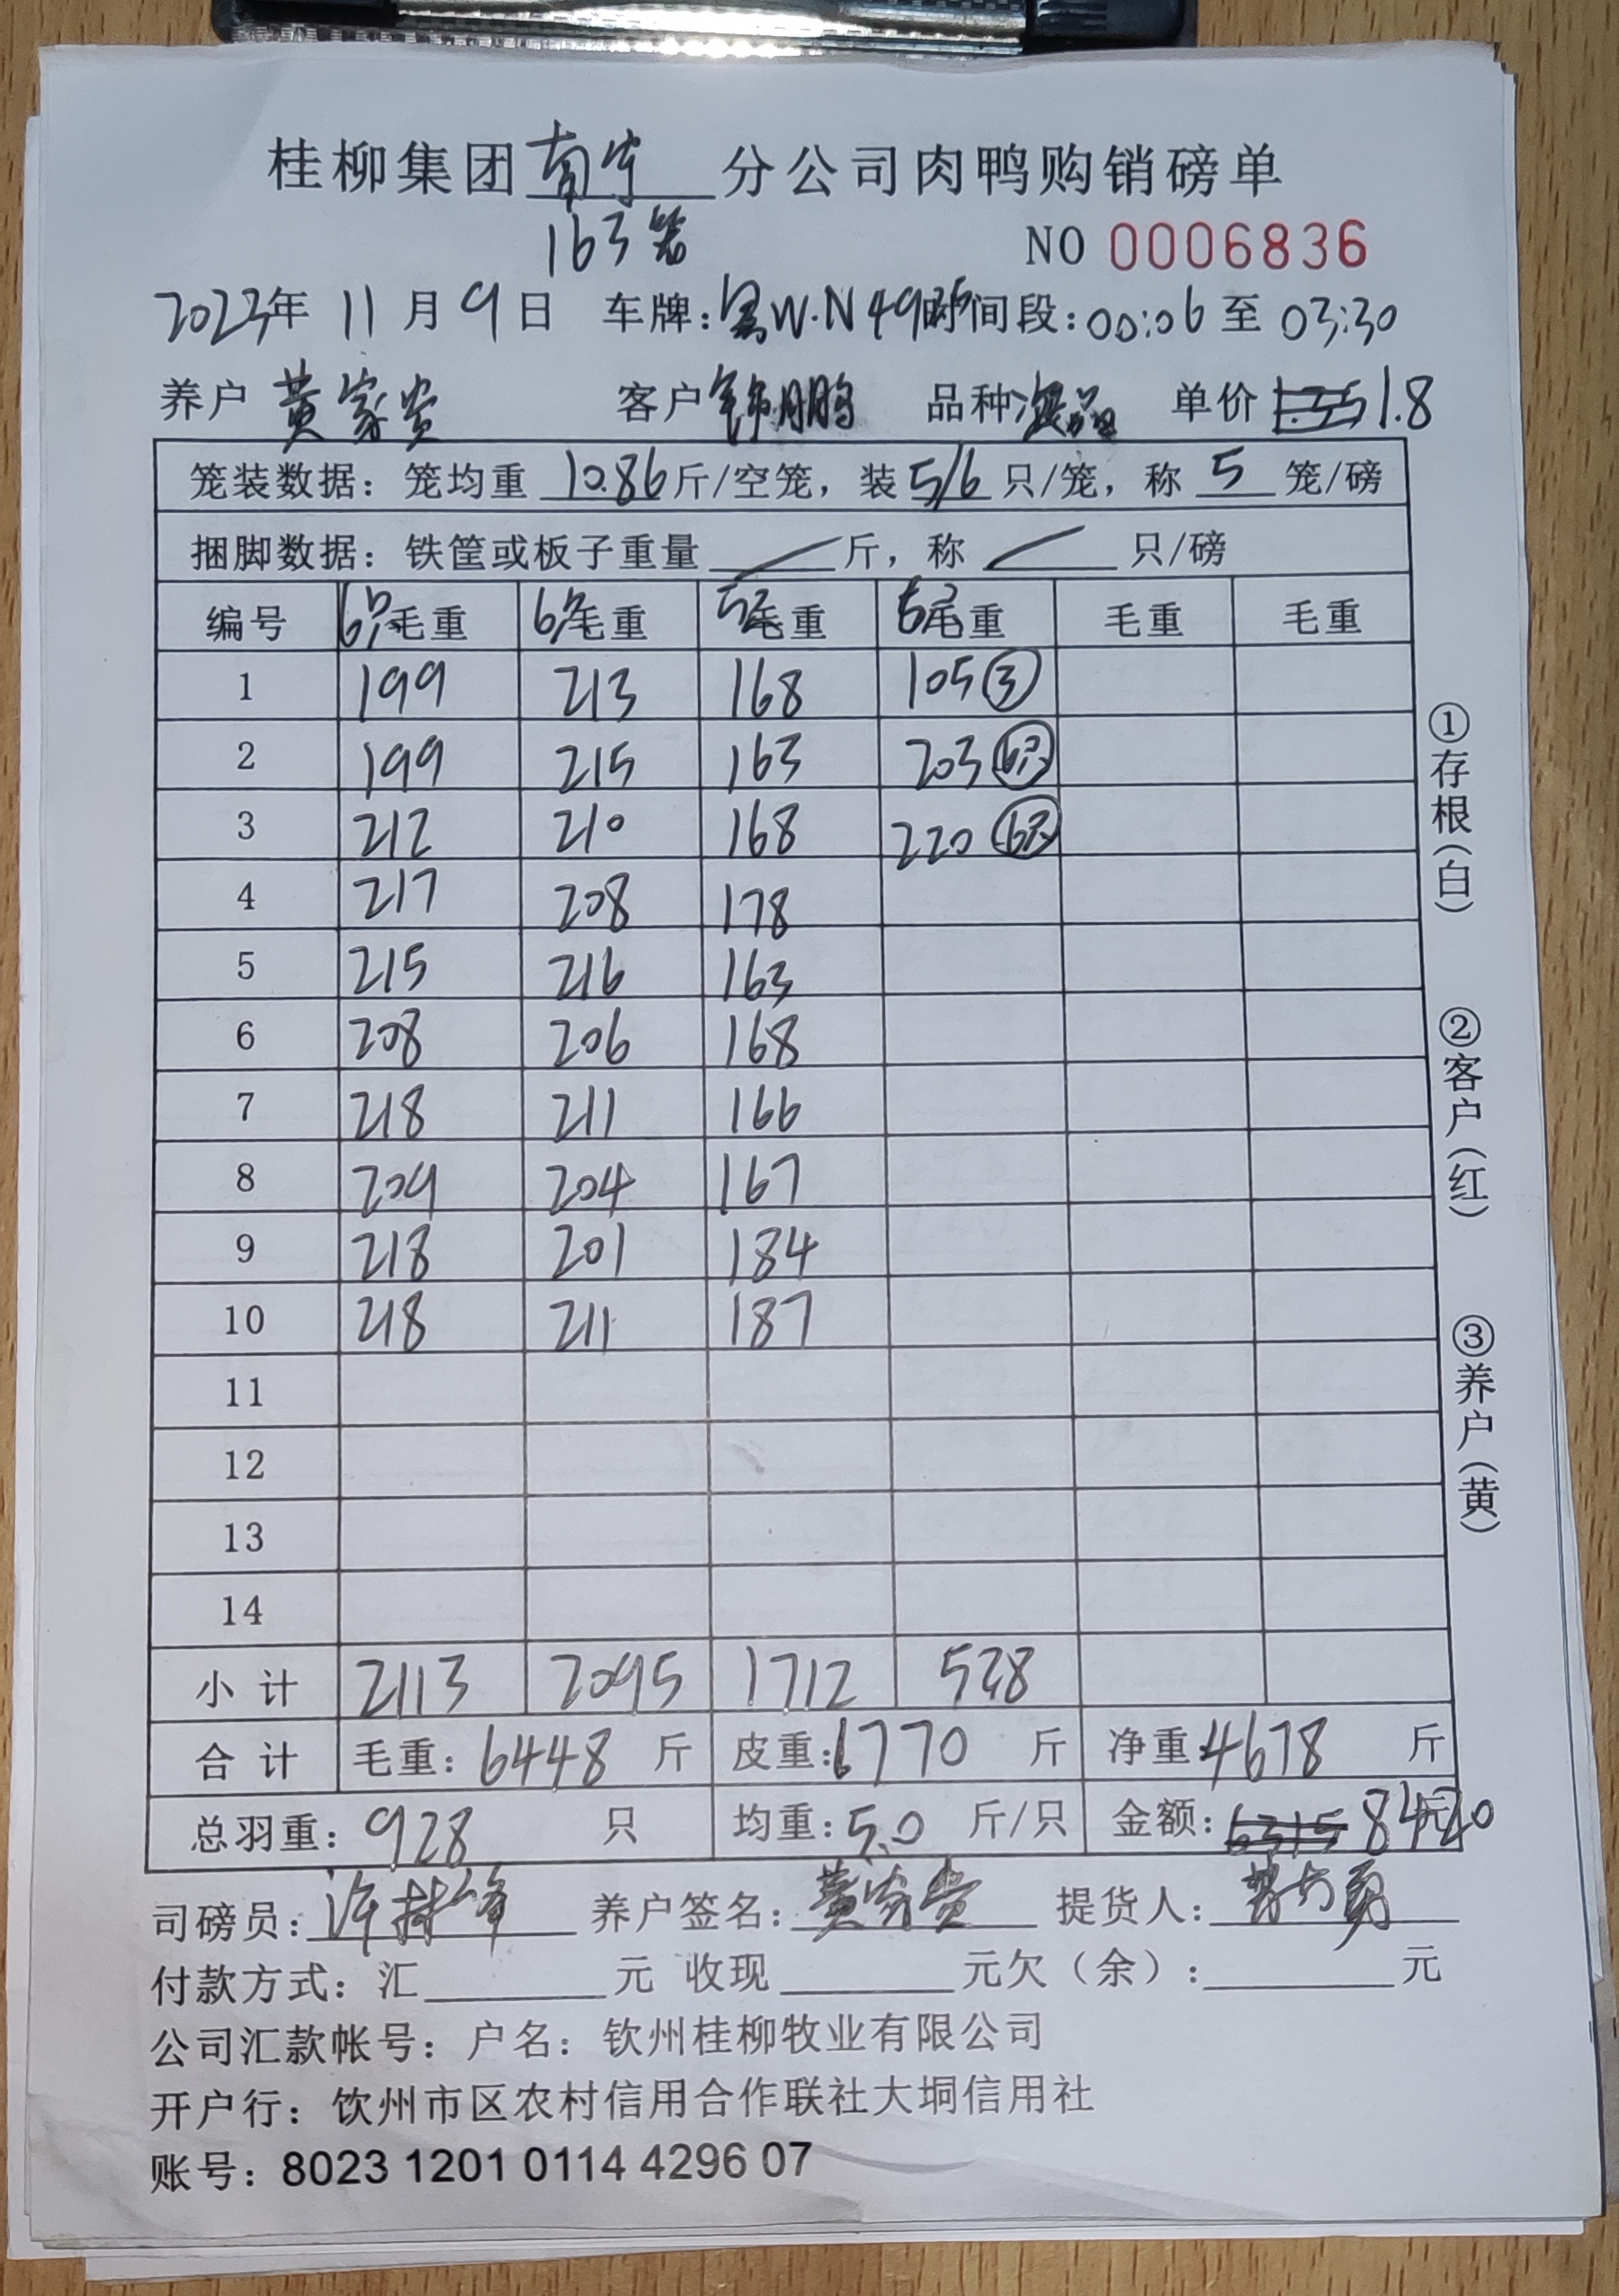 桂柳集团南宁分公司肉鸭购销磅单
163笼
NO 0006836
2023年 11月 9日 车牌: W·N49 时间段:00:06 至 03:30
养户 黄家贵 客户 韩鹏 品种 单价 1.8
笼装数据: 笼均重 10.86 斤/空笼, 装 5/6 只/笼, 称 5 笼/磅
捆脚数据: 铁筐或板子重量 / 斤, 称 / 只/磅
编号 6只毛重 6只毛重 5只毛重 5只毛重 毛重 毛重
1 199 213 168 105③
2 199 215 163 203(6只)
3 212 210 168 220(6只)
4 217 208 178
5 215 216 163
6 208 206 168
7 218 211 166
8 209 204 167
9 218 201 184
10 218 211 187
11
12
13
14
小计 2113 2095 1712 528
合计 毛重: 6448 斤 皮重: 1770 斤 净重: 4678 斤
总羽重: 928 只 均重: 5.0 斤/只 金额: 6315 8420元
司磅员: 许林峰 养户签名: 黄家贵 提货人:
付款方式: 汇 元 收现 元欠(余): 元
公司汇款帐号: 户名: 钦州桂柳牧业有限公司
开户行: 钦州市区农村信用合作联社大垌信用社
账号: 8023 1201 0114 4296 07
①存根(白)
②客户(红)
③养户(黄)